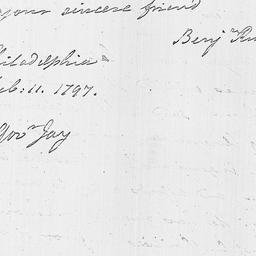 your sincere friend
Benj Ru
hiladelphia
eb: 11. 1797.
Govr Jay